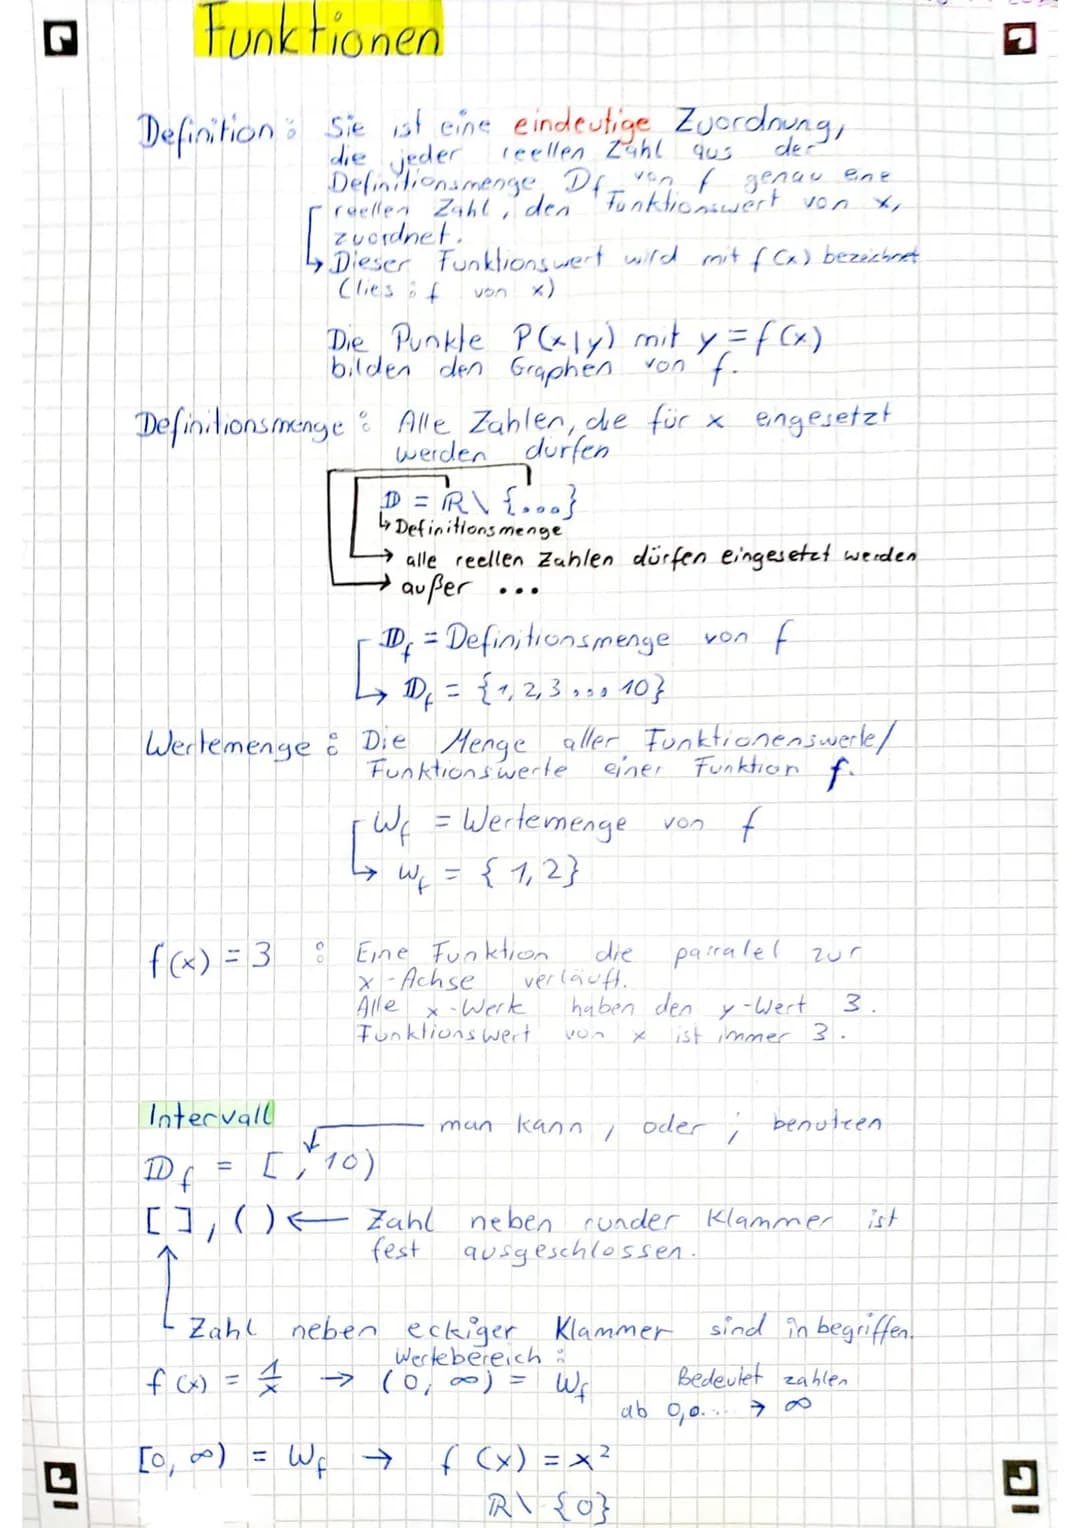 Funktionen
Definition: Sie ist eine eindeutige Zuordnung,
die jeder reellen Zahl aus der
Definitionsmenge Df von f genau ene
reellen Zahl, den Funktionswert von x,
zuordnet.
↳ Dieser Funktionswert wird mit f(x) bezeichnet
(lies: f von x)
Die Punkte P(x|y) mit y = f(x)
bilden den Graphen von f.
Definitionsmenge: Alle Zahlen, die für x eingesetzt
werden dürfen
𝔻 = ℝ\ {...}
↳ Definitionsmenge
→ alle reellen Zahlen dürfen eingesetzt werden
→ außer ...
𝔻f = Definitionsmenge von f
↳ 𝔻f = {1, 2, 3 ... 10}
Wertemenge: Die Menge aller Funktionenswerte/
Funktionswerte einer Funktion f.
Wf = Wertemenge von f
↳ Wf = {1, 2}
f(x) = 3 : Eine Funktion die parralel zur
x-Achse verläuft.
Alle x-Werk haben den y-Wert 3.
Funktionswert von x ist immer 3.
Intervall
man kann , oder ; benutzen
𝔻f = [ , 10)
[ ] , ( ) ← Zahl neben runder Klammer ist
fest ausgeschlossen.
Zahl neben eckiger Klammer sind inbegriffen.
Wertebereich:
f(x) = 1/x → (0; ∞) = Wf Bedeutet zahlen
ab 0,0... → ∞
[0, ∞) = Wf → f(x) = x²
ℝ\ {0}